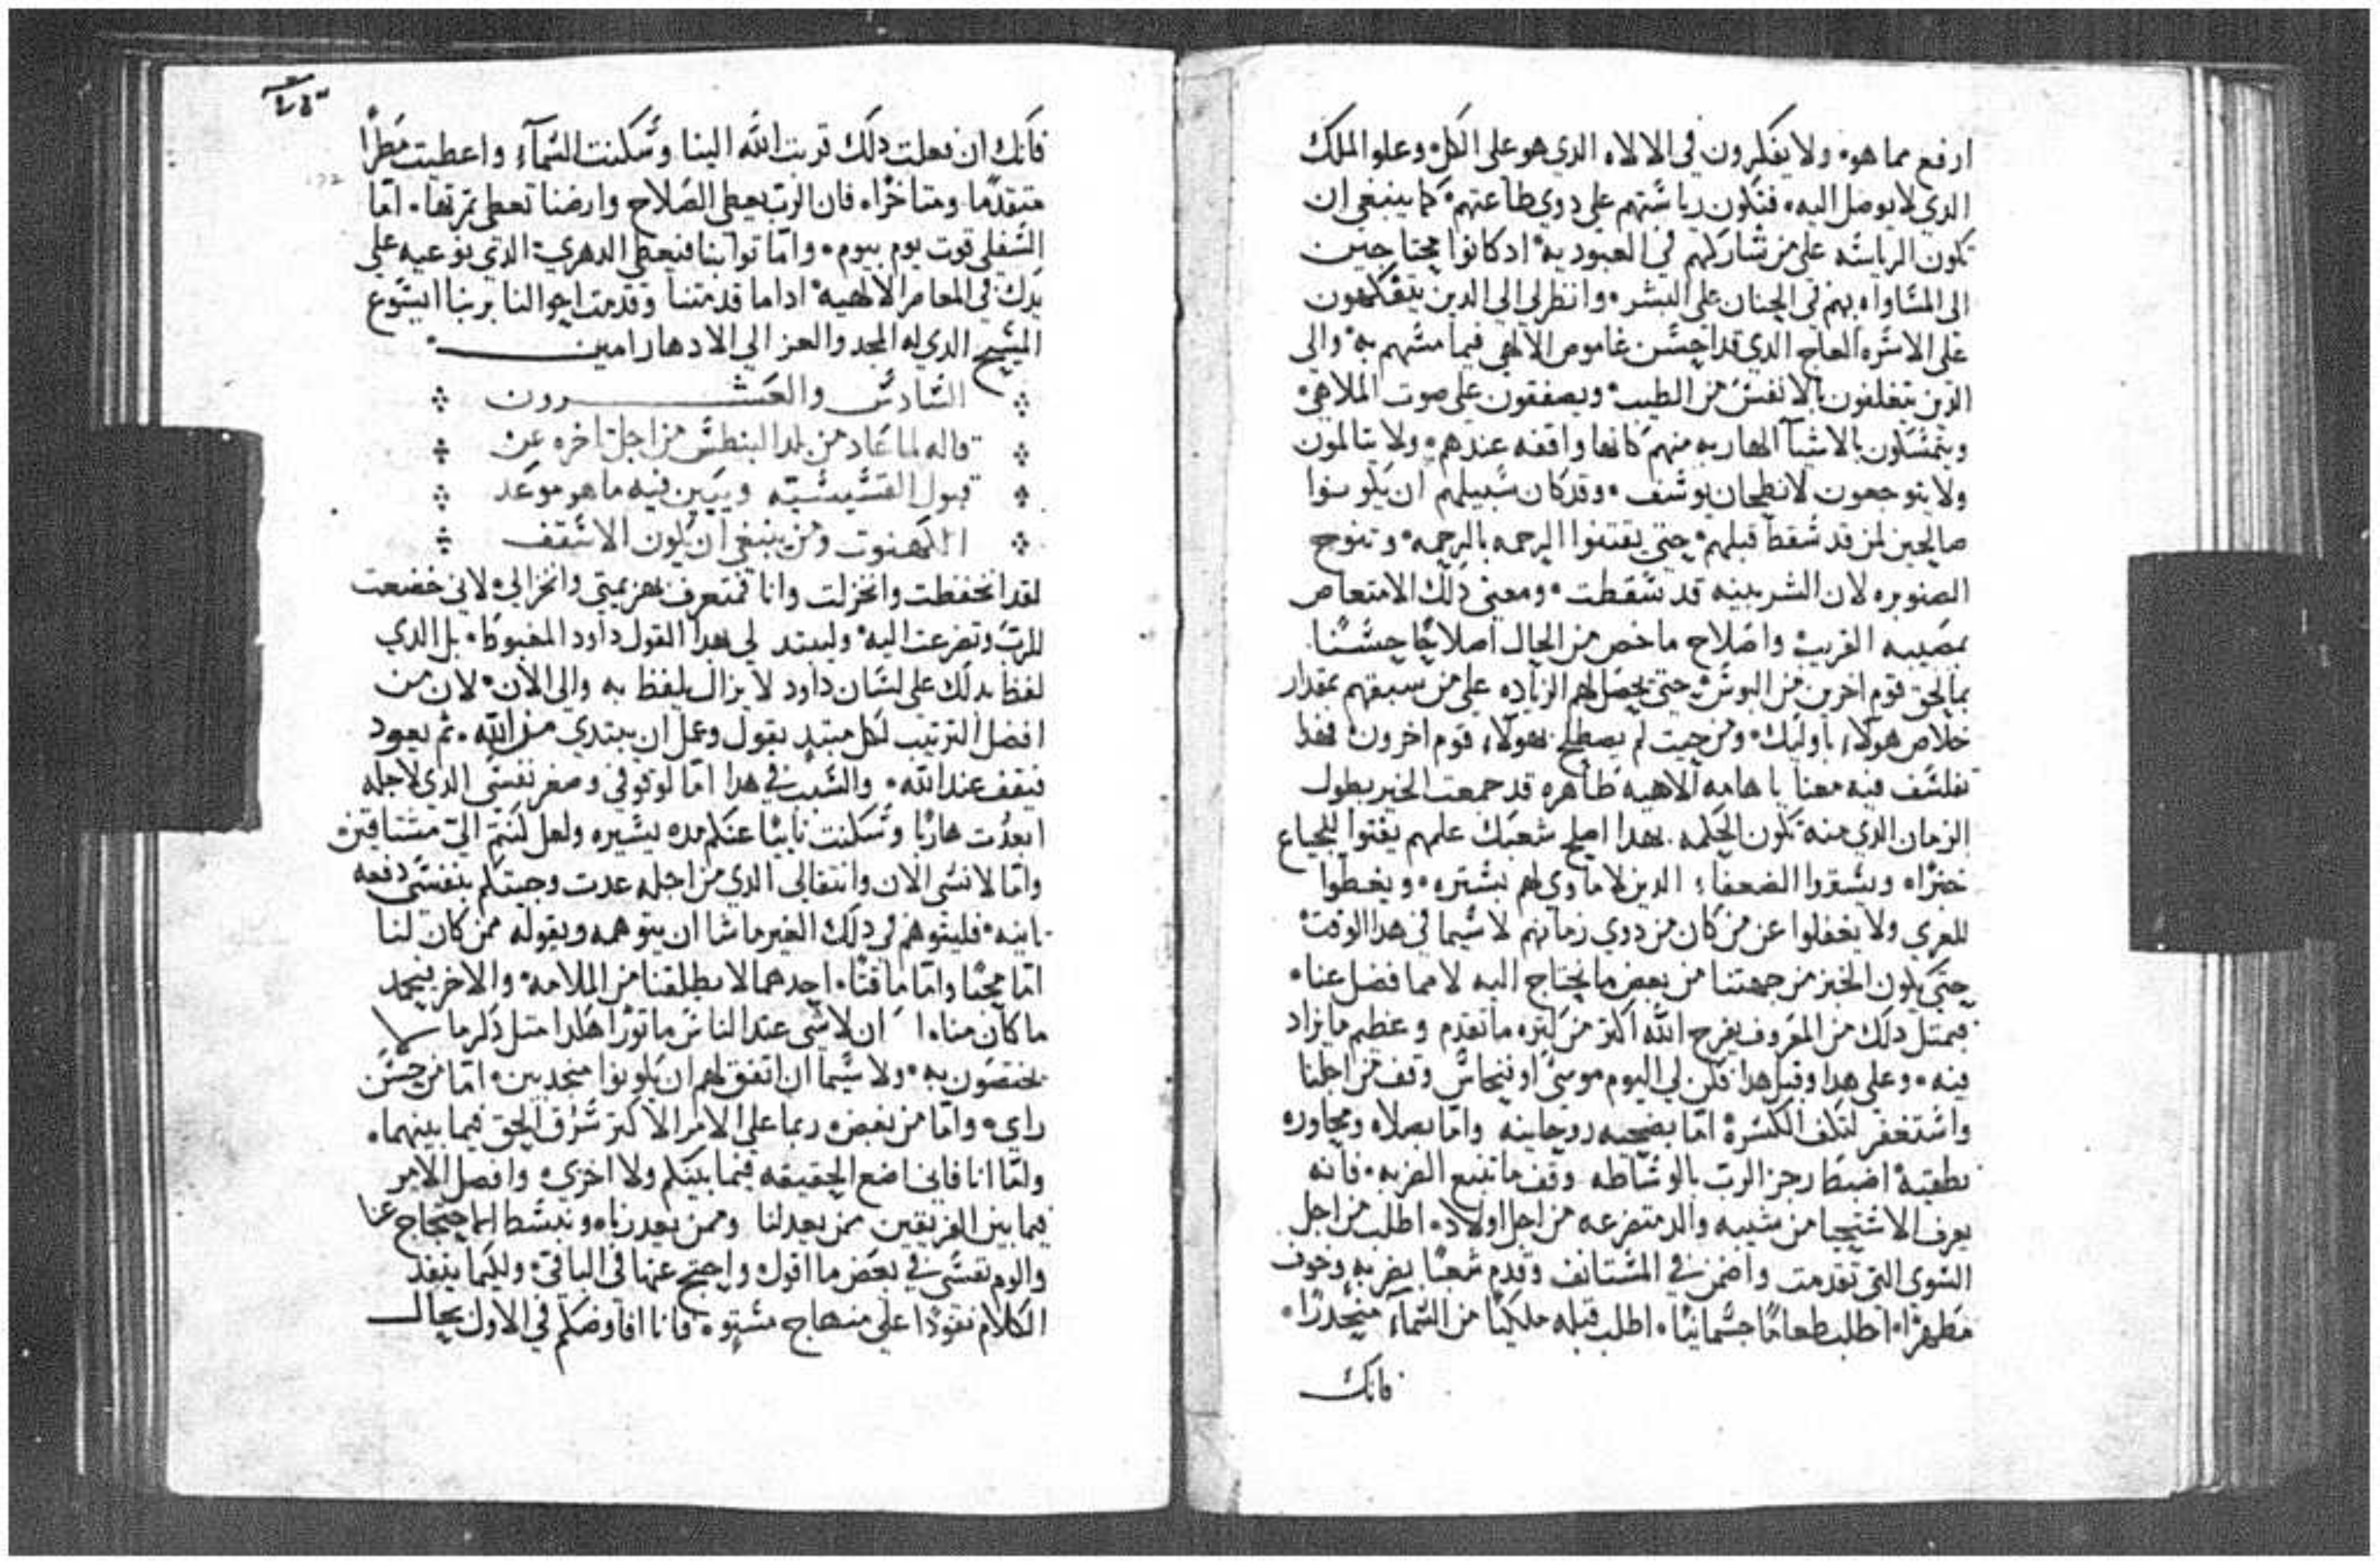 ارفع مما هو، ولا يفكرون في الالاه الدي هو على الكل، وعلو الملك
الدي لا يوصل اليه، فتكون رياستهم علي دوي طاعتهم، كما ينبغي ان
تكون الرياسه على من شاركهم في العبوديه، ادكانوا محتاجين
الى المساواه بهم في الحنان على البشر، وانظر لي الى الدين يتفكهون
على الاسره العاج الدي قد احسن غاموص الالهي فيما مسهم به، والى
الدين يتغلفون بالانفس من الطيب، ويصفقون على صوت الملاهي،
ويتمسكون بالاشيآ الهاربه منهم كانها واقفه عندهم، ولا يتالمون
ولا يتوجعون لانطحان يوسف، وقد كان سبيلهم ان يكونوا
صالحين لمن قد سقط قبلهم، حتى يقتنوا الرحمه بالرحمه، وتنوح
الصنوبره لان الشربينه قد سقطت، ومعنى دلك الامتعاص
بمصيبه القريب، واصلاح ما خص من الحال اصلاحًا حسنًا
بما لحق قوم اخرين من البوس، حتى يحصل لهم الزياده على من سبقهم بمقدار
خلاص هولآء باوليك، ومن حيت لم يصطلح بهولآء قوم اخرون، فهدا
تفلسف فيه معنا يا هامه الاهيه طاهره قد جمعت الخير بطول
الزمان الدي منه تكون الحكمه. بهدا اصلح شعبك علمهم يفتوا للجياع
خبزًا، ويستروا الضعفاء الدين لا ماوي لهم بستره، ويغطوا
العري ولا يغفلوا عن من كان من دوي زمانهم لا سيما في هدا الوقت
حتى يكون الخبز من جهتنا من بعض ما نحتاج اليه لا مما فضل عنا،
فبمتل دلك من المعروف يفرح الله اكتر من كتره ما تقدم وعظم ما يزاد
فيه، وعلى هدا وقبل هدا فكن لي اليوم موسى او فنحاس وقف من اجلنا
واستغفر لتكف الكسرة اما بضحيه روحانيه واما بصلاه ومجاوره
نطقيه، اضبط رجز الرب بالوساطه وقف ما تتبع الضربه، فانه
يعرف الاستحيا من شيبه والد متضرعه من اجل اولاد، اطلب من اجل
السوي التي تقدمت واضمن في المستانف وقدم شعبًا بضربه وخوف
مطهرًا، اطلب طعامًا جسمانيًا، اطلب قبله ملكيًا من السمآء منحدرًا،
فانك
فانك ان فعلت دلك قربت الله الينا وسكنت السمآء واعطيت مطرًا
متقدمًا ومتاخرًا، فان الرب يعطى الصلاح وارضنا تعطى تمرتها، امّا
السفلي قوت يوم بيوم، وامّا توابنا فتعطي الدهرية الدي نوعيه علي
يدك في المعاصر الالهيه، اداما قدمتنا وقدمت احوالنا بربنا ايسوع
المسيح الدي له المجد والعز الي الادهار امين
السادس والعشرون
قاله لما عاد من بلد البنطس من اجل تاخره عن
قبول القسيسيّه ويبين فيه ما هو موعد
الكهنوت ومن ينبغي ان يكون الاسقف
لقد انخفظت وانخزلت وانا فمتعرف بهزيمتي وانخزالي، لاني خضعت
للرب وتضرعت اليه، وليبتد لي بهدا القول داود المغبوطا، بل الدي
لفظ بدلك على لسان داود لا يزال يلفظ به والي الان، لان من
افضل الترتيب لكل مبتدٍ بقول وعمل ان يبتدي من الله، ثم يعود
فيقف عند الله، والسبب في هدا امّا لوقوفي وصغر نفسي الدي لاجله
ابعدت هاربًا وسكنت نايبًا عنكم مده يسيره ولعل لستم اليّ مشتاقين،
وامّا لانسي الان وانتقالي الدي من اجله عدت وجيتكم بنفسي دفعه
تانيه، فليتوهم في دلك الغير ما شا ان يتوهمه ويقوله ممن كان لنا
امّا محبًا وامّا ماقتًا، احدهما لا يطلقنا من الملامه، والاخر يحمد
ما كان منا، ا ان لا شي عند الناس ماتورًا هكدا متل دكر ما لا
يختصون به، ولا سيما ان اتفق لهم ان يكونوا منجدبين، امّا من حسن
راي، وامّا من بغض، ربما على الامر الاكتر سرق الحق فيما بينهما،
وامّا انا فاني اضع الحقيقه فيما بينكم ولا اخزي، وافصل الامر
فيما بين الفريقين ممن يعدلنا وممن يعدرنا، ونبسط لها حتجاج عنا
والوم نفسي في بعض ما اقول، واحتج عنها في الباقي، ولكيما ينفد
الكلام نفودًا على منهاج مستوٍ، فانا افاوضكم في الاول بحال